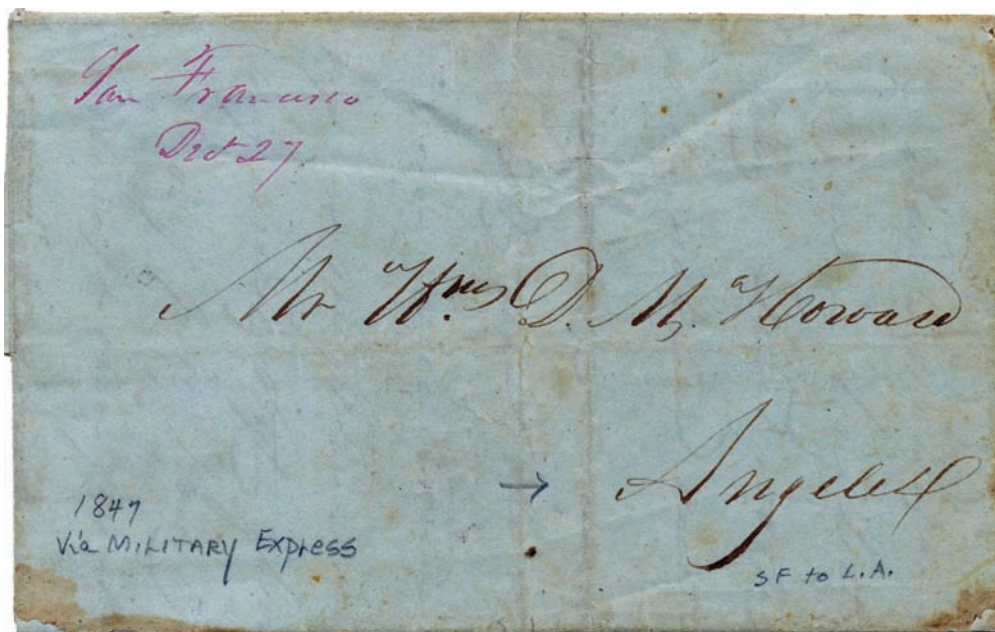 San Francisco
Dect 27
Mr Wm D. M. Howard
→ Angeles
1847
Via MILITARY Express
SF to L.A.